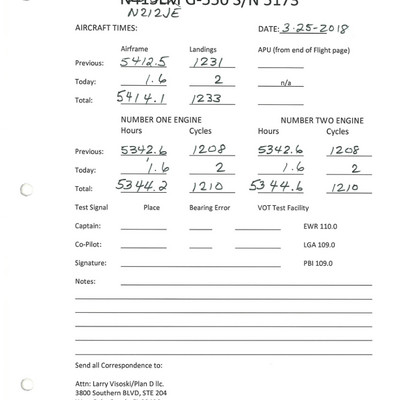 N415LM G-550 S/N 5173
N212JE
AIRCRAFT TIMES: DATE: 3-25-2018
Airframe Landings APU (from end of Flight page)
Previous: 5412.5 1231
Today: 1.6 2 n/a
Total: 5414.1 1233
NUMBER ONE ENGINE NUMBER TWO ENGINE
Hours Cycles Hours Cycles
Previous: 5342.6 1208 5342.6 1208
Today: 1.6 2 1.6 2
Total: 5344.2 1210 5344.6 1210
Test Signal Place Bearing Error VOT Test Facility
Captain: EWR 110.0
Co-Pilot: LGA 109.0
Signature: PBI 109.0
Notes:
Send all Correspondence to:
Attn: Larry Visoski/Plan D llc.
3800 Southern BLVD, STE 204